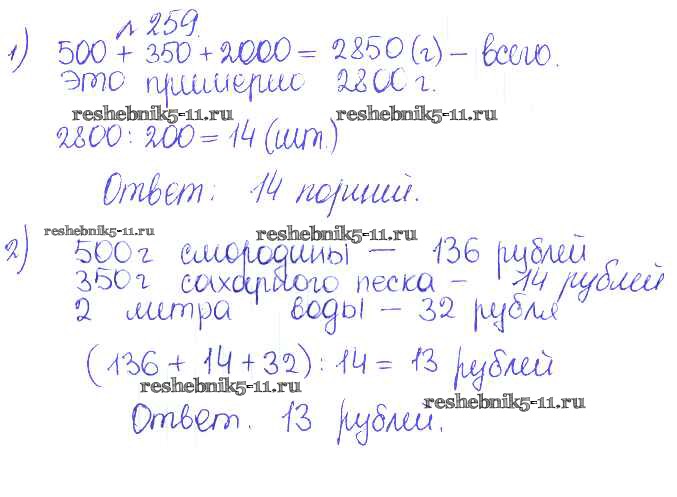 № 259.
1) 500 + 350 + 2000 = 2850 (г) – всего.
Это примерно 2800 г.
reshebnik5-11.ru reshebnik5-11.ru
2800 : 200 = 14 (шт.)
Ответ: 14 порций.
reshebnik5-11.ru reshebnik5-11.ru
2) 500 г смородины – 136 рублей
350 г сахарного песка – 14 рублей
2 метра воды – 32 рубля
(136 + 14 + 32) : 14 = 13 рублей
reshebnik5-11.ru reshebnik5-11.ru
Ответ. 13 рублей.